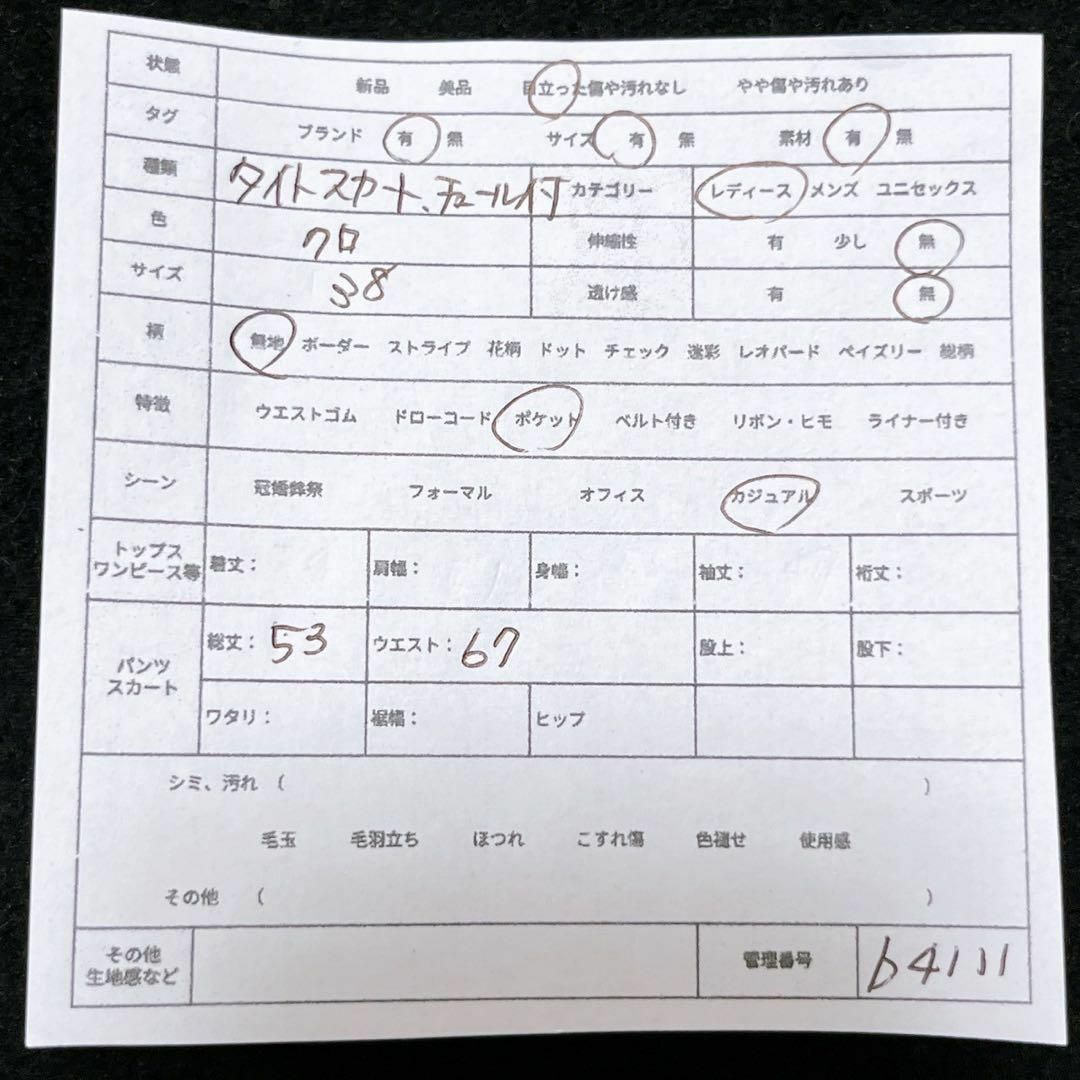 状態 新品 美品 目立った傷や汚れなし やや傷や汚れあり
タグ ブランド 有 無 サイズ 有 無 素材 有 無
種類 タイトスカート、チュール付 カテゴリー レディース メンズ ユニセックス
色 クロ 伸縮性 有 少し 無
サイズ 38 透け感 有 無
柄 無地 ボーダー ストライプ 花柄 ドット チェック 迷彩 レオパード ペイズリー 総柄
特徴 ウエストゴム ドローコード ポケット ベルト付き リボン・ヒモ ライナー付き
シーン 冠婚葬祭 フォーマル オフィス カジュアル スポーツ
トップス
ワンピース等 着丈: 肩幅: 身幅: 袖丈: 裄丈:
パンツ
スカート 総丈: 53 ウエスト: 67 股上: 股下:
ワタリ: 裾幅: ヒップ
シミ、汚れ ( )
毛玉 毛羽立ち ほつれ こすれ傷 色褪せ 使用感
その他 ( )
その他
生地感など 管理番号 b4111